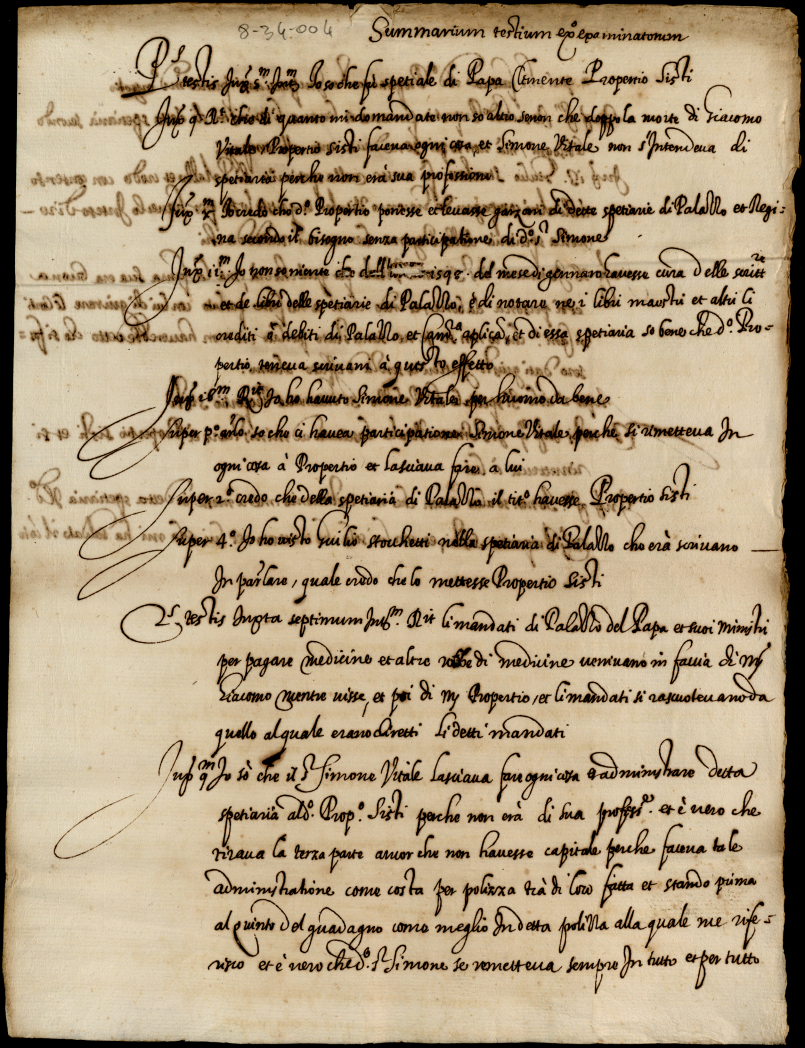 8-34-004
Summarium testium ex
Ps testis Io so che fu spetiale di Papa Clemente Propertio Sisti
di quanto mi domandate non so altro senon che doppo la morte di Giacomo
Vitale Propertio Sisti faceva ogni cosa, et Simone Vitale non s'Intendeva di
spetiaria perche non erà sua professione
Io credo che d.º Propertio ponesse et levasse garzoni di dette spetiarie di Palazzo et Regi=
na secondo il bisogno senza participatione di d.º s.r Simone
Io non so niente che del mese di gennaro havesse cura delle
et de libri delle spetiarie di Palazzo, e di notare nei libri maestri et altri li
crediti debiti di Palazzo, et et di essa spetiaria so bene che d.º Pro=
pertio teneva scrivani à questo effetto
Io ho havuto Simone Vitale per huomo da bene
Super p.º so che ci havea participatione Simone Vitale, perche si rimetteva In
ogni cosa à Propertio et lasciava fare à lui
Super 2.º credo che della spetiaria di Palazzo il tit.º havesse Propertio Sisti
Super 4.º Io ho visto stocchetti nella spetiaria di Palazzo che erà scrivano
In parlare, quale credo che lo mettesse Propertio Sisti
2.s testis Iuxta septimum li mandati di Palazzo del Papa et suoi Ministri
per pagare medicine et altre robbe di medicine venivano in faccia di
Giacomo mentre visse, et poi di Propertio, et li mandati si rascuotevano da
quello al quale erano diretti li detti mandati
Io sò che il s.r Simone Vitale lasciava fare ogni cosa administrare detta
spetiaria al d.º Prop.º Sisti perche non erà di sua et è vero che
tirava la terza parte ancor che non havesse capitale perche faceva tale
administratione come costa per polizza trà di loro fatta et stando prima
al quinto del guadagno come meglio In detta polizza alla quale me rife=
risco et è vero che d.º s.r Simone se remetteva sempre In tutto et per tutto